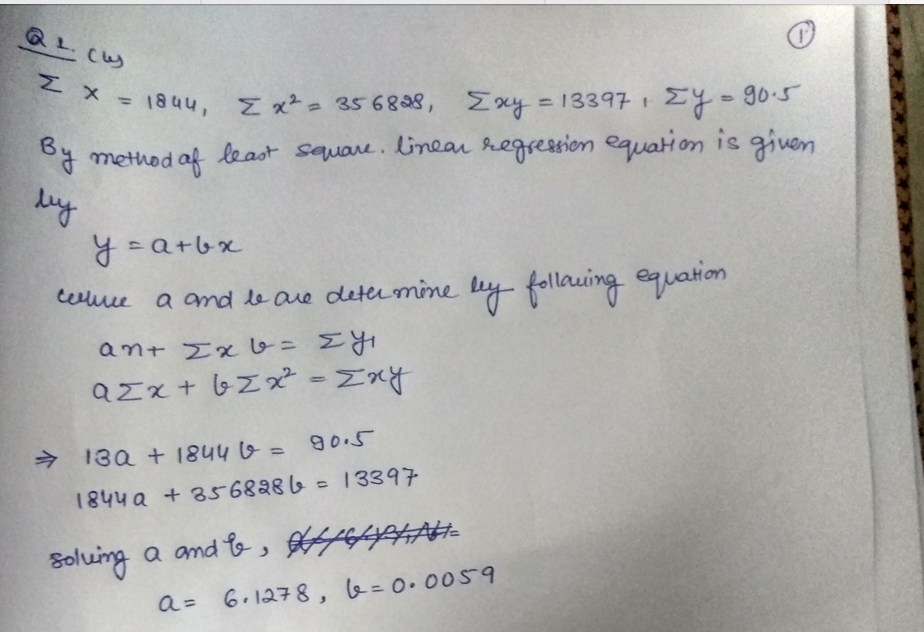 ①
Q 1. (b)
Σ x = 1844, Σ x² = 356828, Σ xy = 13397, Σy = 90.5
By method of least square. linear regression equation is given
by
y = a+bx
where a and b are determine by following equation
an+ Σx b = Σy,
aΣx + bΣx² = Σxy
⇒ 13a + 1844b = 90.5
1844a + 356828b = 13397
solving a and b,
a = 6.1278, b = 0.0059